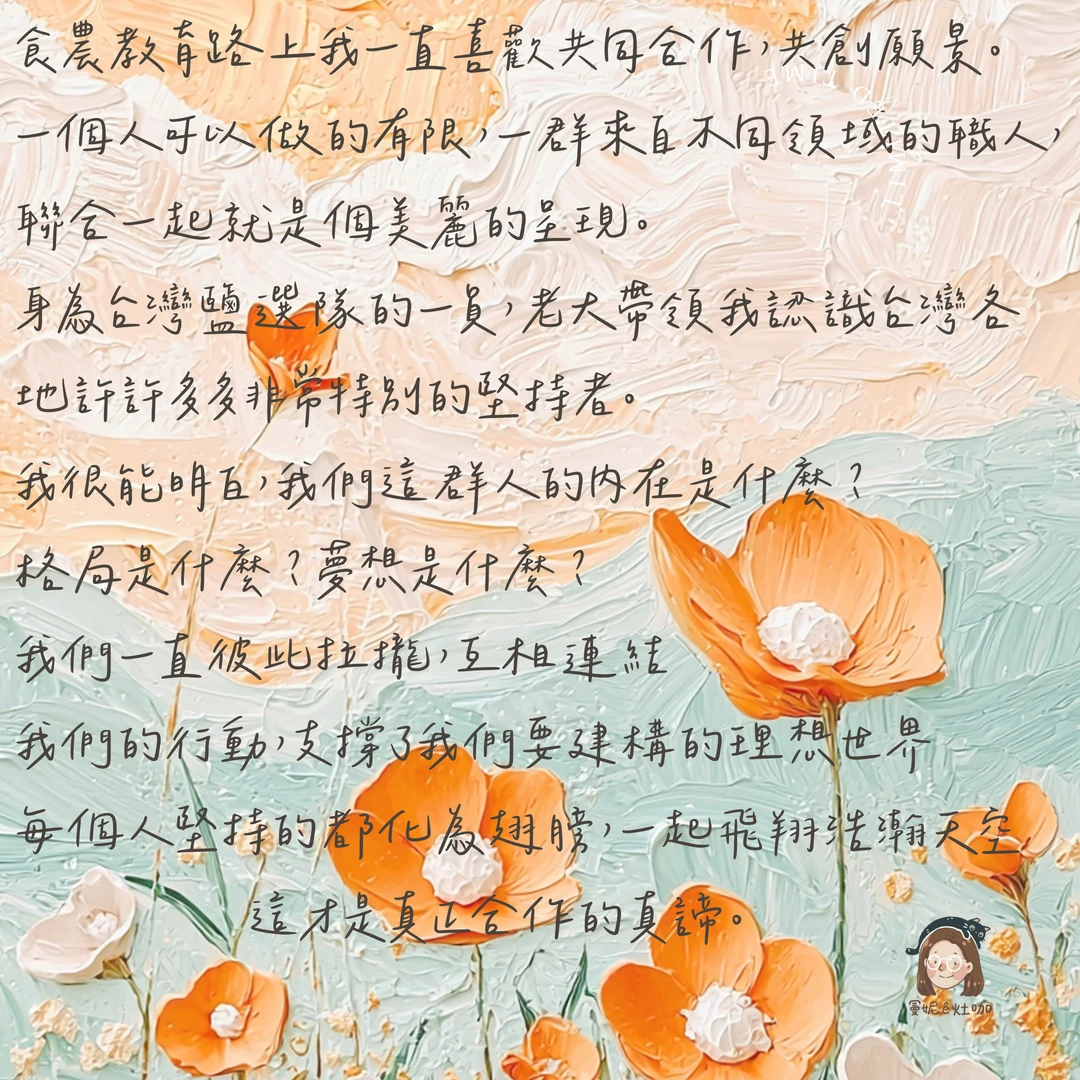 食農教育路上我一直喜歡共同合作，共創願景。
一個人可以做的有限，一群來自不同領域的職人，
聯合一起就是個美麗的呈現。
身為台灣鹽選隊的一員，老大帶領我認識台灣各
地許許多多非常特別的堅持者。
我很能明白，我們這群人的內在是什麼？
格局是什麼？夢想是什麼？
我們一直彼此拉攏，互相連結
我們的行動，支撐了我們要建構的理想世界
每個人堅持的都化為翅膀，一起飛翔浩瀚天空
這才是真正合作的真諦。
曼妮e灶咖